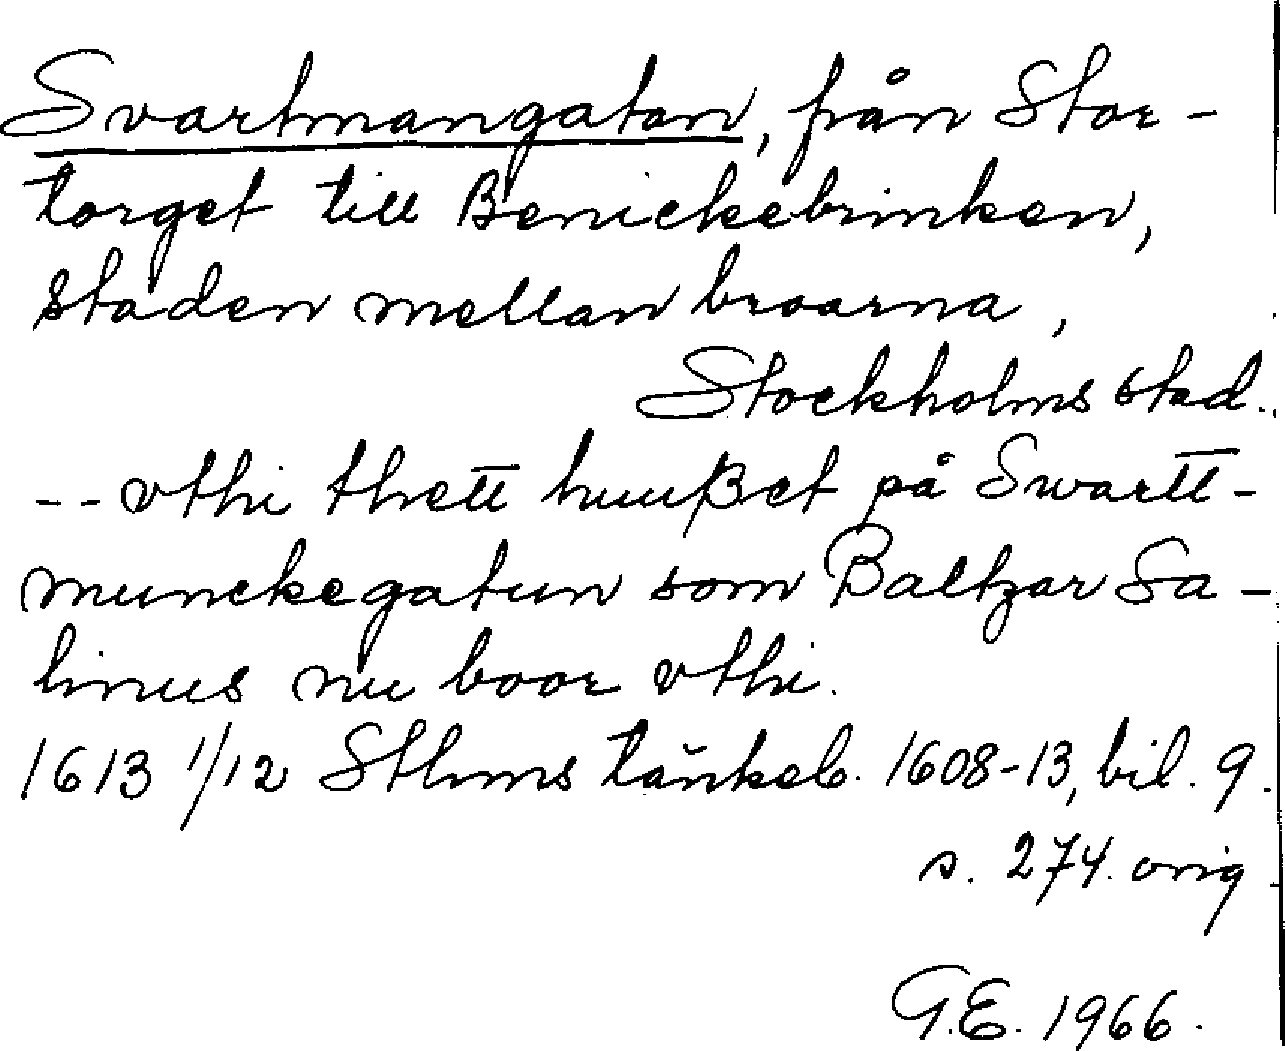 Svartmangatan, från Stor-
torget till Benickebrinken,
staden mellan broarna,
Stockholms stad.
-- vthi thett huußet på Swartt-
munckegatun som Baltzar Sa-
linus nu boor vthi.
1613 1/12 Sthms tänkeb. 1608-13, bil. 9.
s. 274. orig
G.E. 1966.